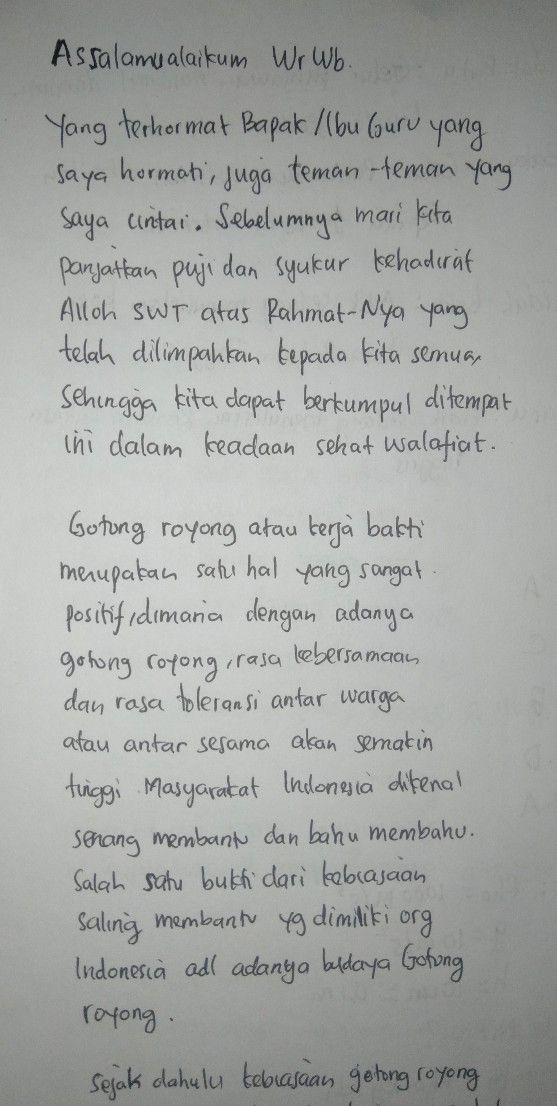 Assalamualaikum Wr Wb.
Yang terhormat Bapak/Ibu Guru yang
saya hormati, juga teman-teman yang
saya cintai. Sebelumnya mari kita
panjatkan puji dan syukur kehadirat
Alloh SWT atas Rahmat-Nya yang
telah dilimpahkan kepada kita semua,
sehingga kita dapat berkumpul ditempat
ini dalam keadaan sehat walafiat.
Gotong royong atau kerja bakti
merupakan satu hal yang sangat
positif, dimana dengan adanya
gotong royong, rasa kebersamaan
dan rasa toleransi antar warga
atau antar sesama akan semakin
tinggi. Masyarakat Indonesia dikenal
senang membantu dan bahu membahu.
Salah satu bukti dari kebiasaan
saling membantu yg dimiliki org
Indonesia adl adanya budaya Gotong
royong.
Sejak dahulu kebiasaan gotong royong